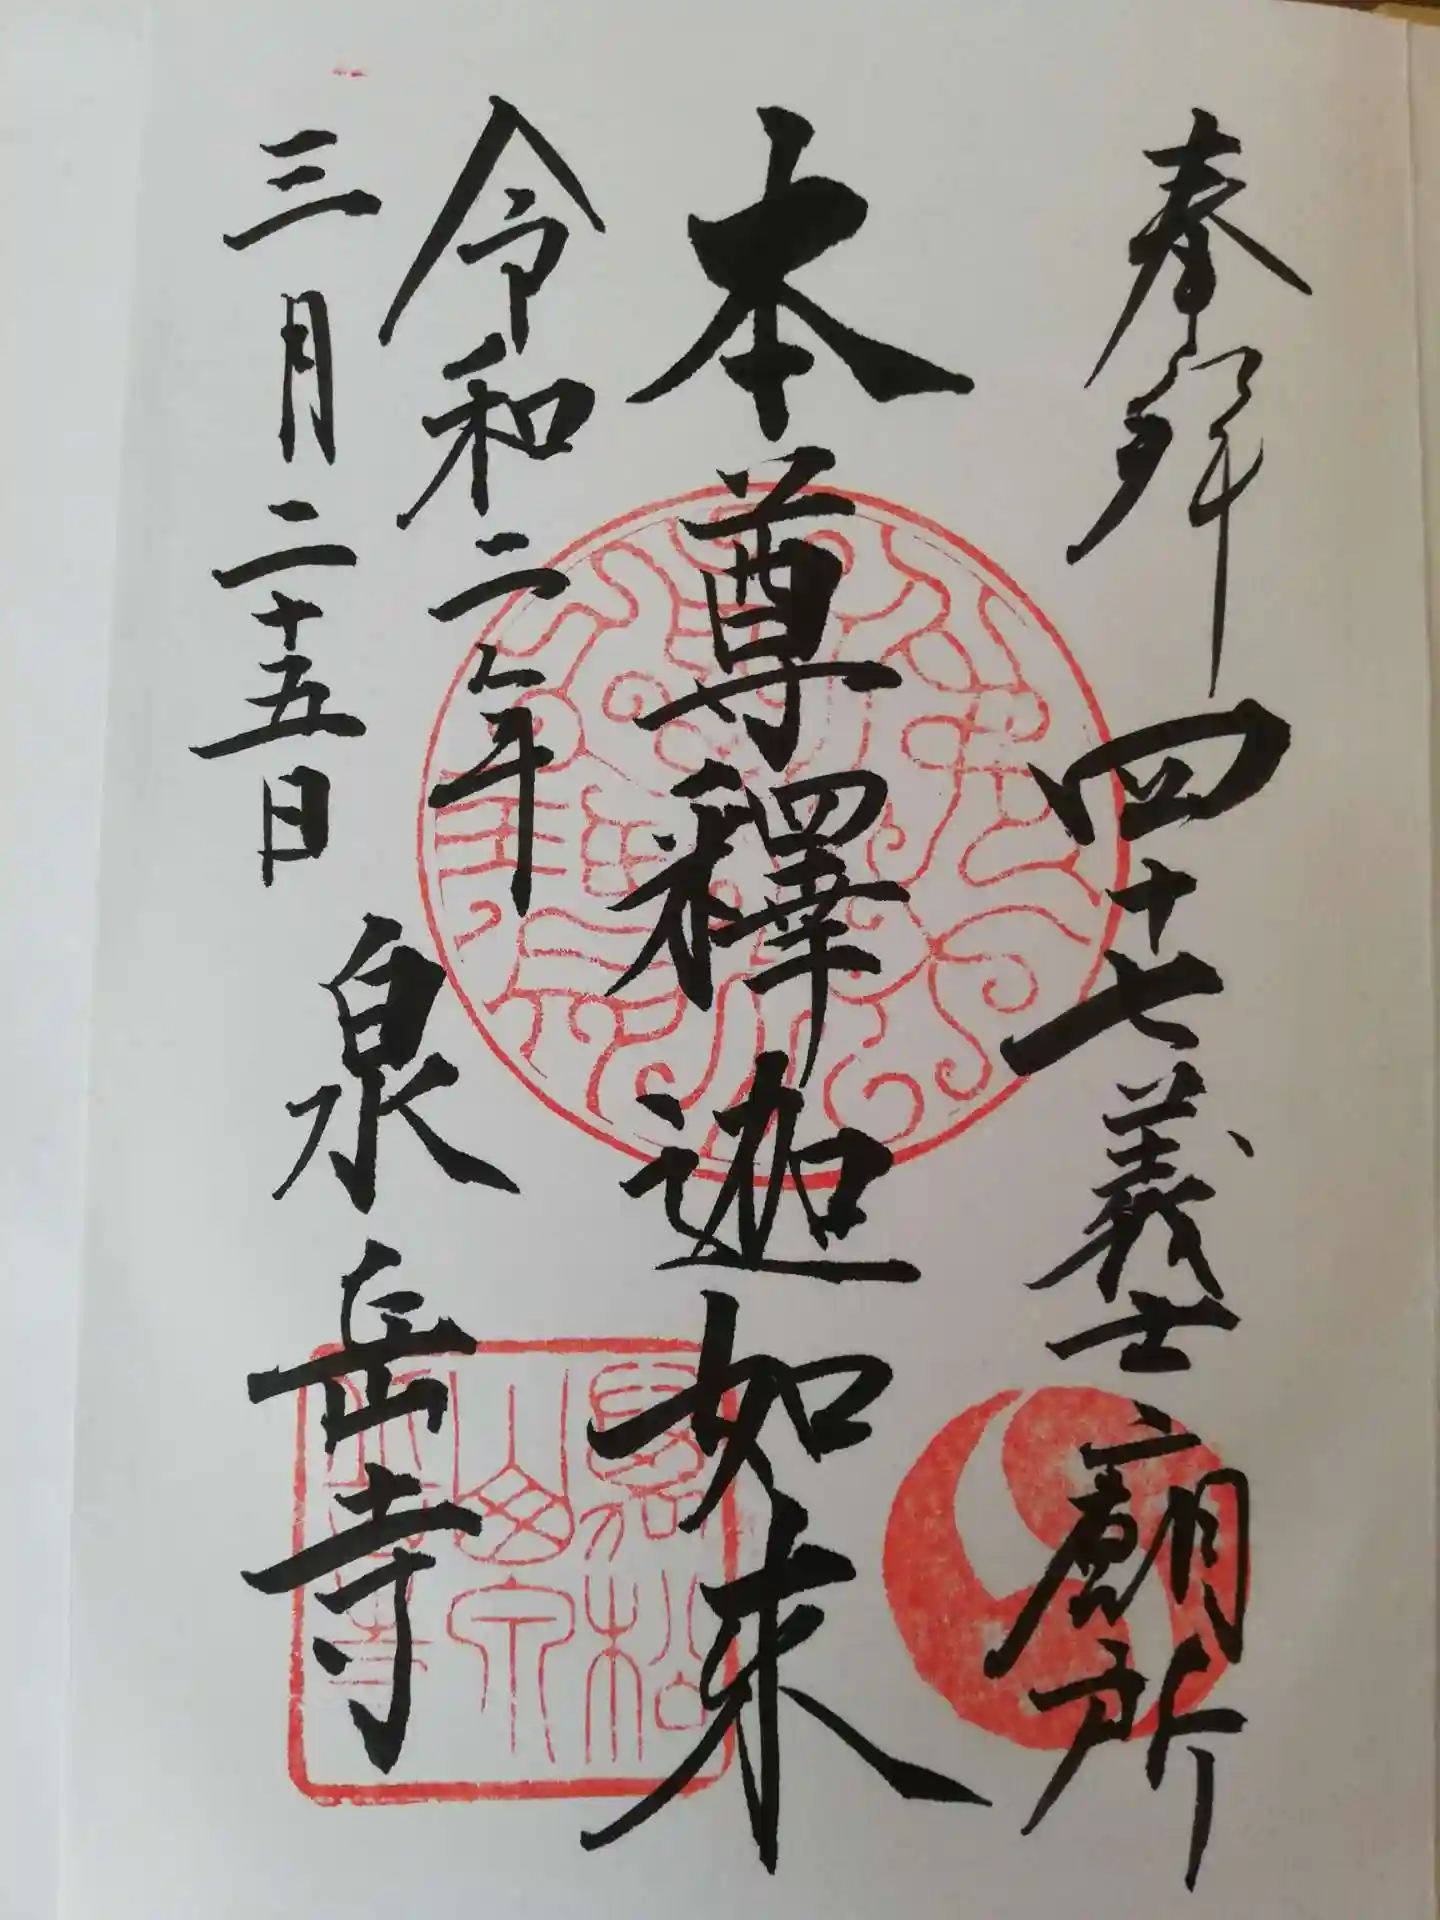 奉拜 四十七義士廟所
本尊釋迦如来
令和二年
三月二十五日
泉岳寺
萬松
山泉
岳寺